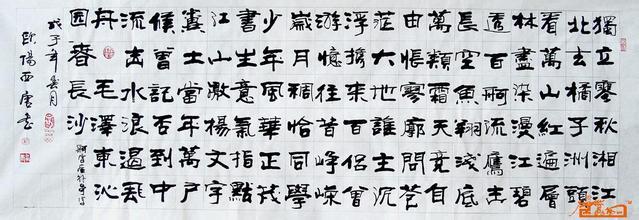 獨立寒秋湘江
北去橘子洲頭
看萬山紅遍層
林盡染漫江碧
透百舸流鷹击
長空魚翔淺底
萬類霜天競自
由悵寥廓問蒼
茫大地誰主沉
浮攜來百侶曾
游憶往昔崢嶸
歲月稠恰同學
少年風華正茂
書生意氣指點
江山激揚文字
糞土當年萬戶
侯曾記否到中
流击水浪遏飛
舟毛澤東沁
園春長沙
戊子年月
歐陽西書